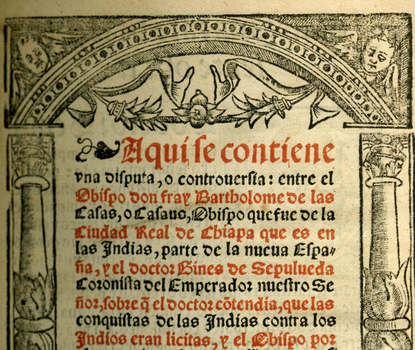 Aqui se contiene
vna disputa, o controuersia: entre el
Obispo don fray Bartholome de las
Casas, o Casaus, Obispo que fue de la
Ciudad Real de Chiapa que es en
las Indias, parte de la nueua Espa-
ña, y el doctor Gines de Sepulueda
Coronista del Emperador nuestro Se
ñor, sobre q̃ el doctor cõtendia, que las
conquistas de las Indias contra los
Indios eran licitas, y el Obispo por